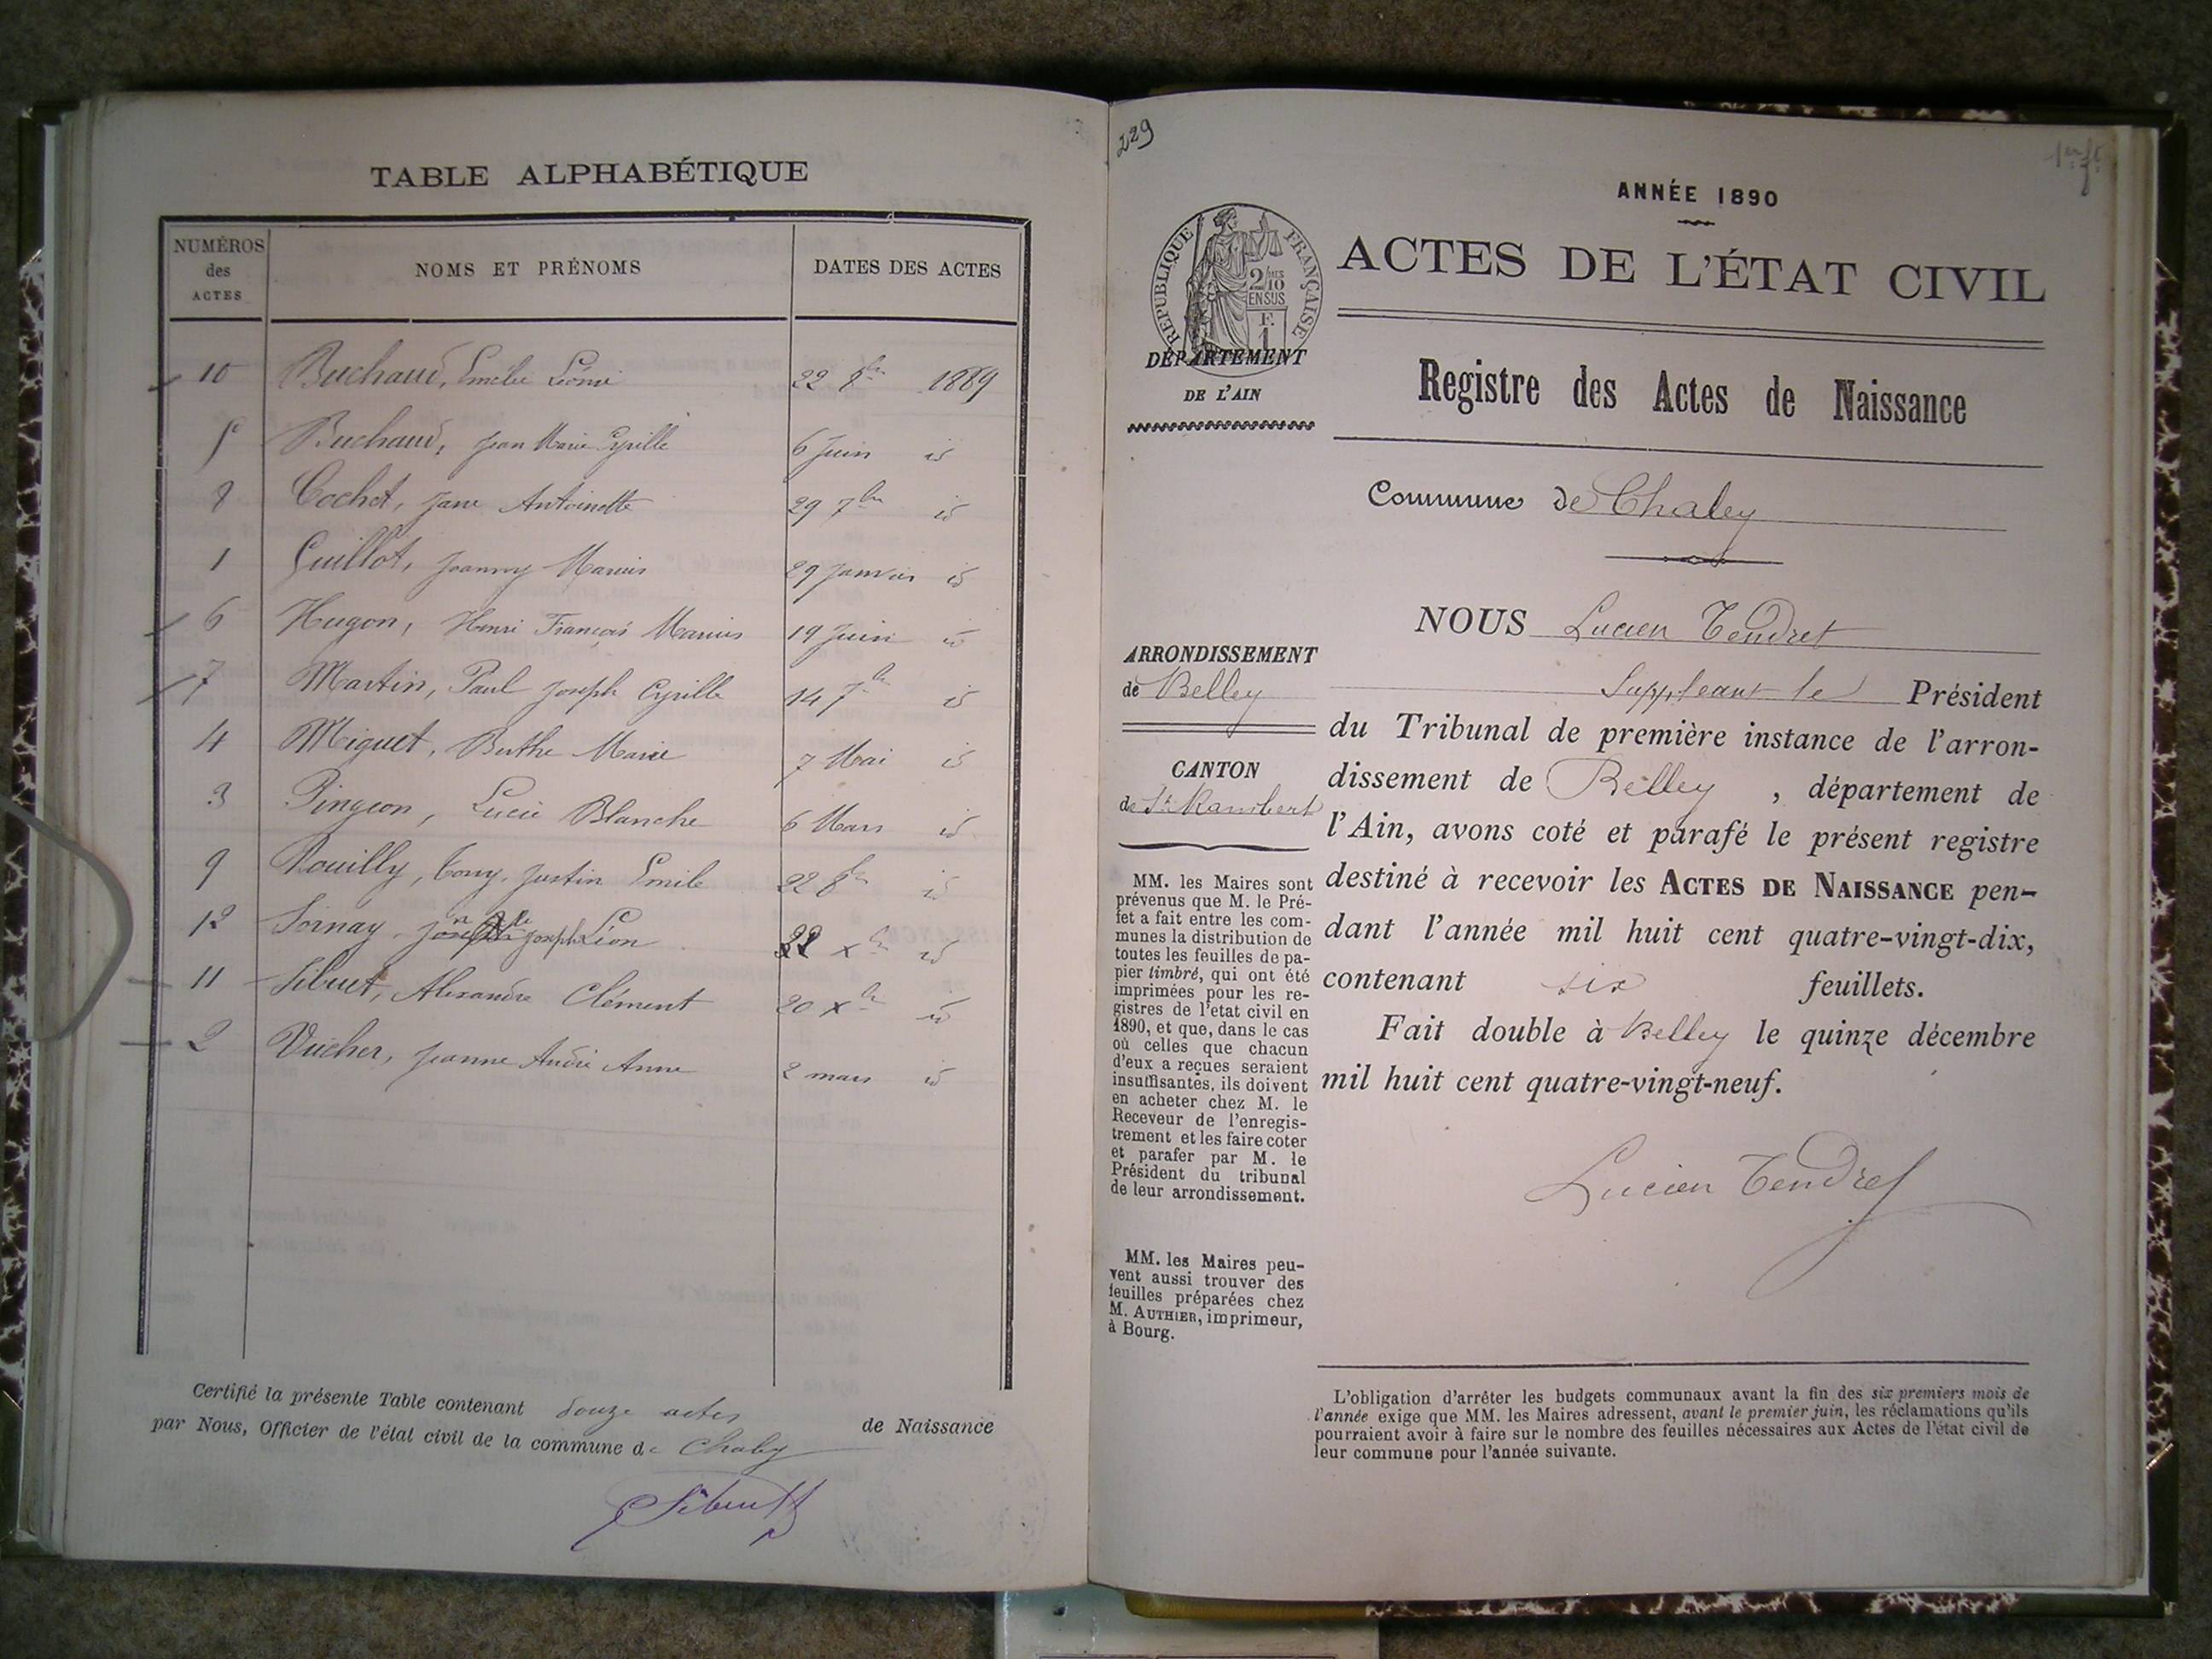 TABLE ALPHABÉTIQUE
NUMÉROS des ACTES NOMS ET PRÉNOMS DATES DES ACTES
10 Buchaud, Emélie Léonie 22 8bre 1889
5 Buchaud, Jean Marie Cyrille 6 Juin id
8 Cochet, Jane Antoinette 29 7bre id
1 Guillot, Joanny Marius 29 Janvier id
6 Hugon, Henri François Marius 19 Juin id
7 Martin, Paul Joseph Cyrille 14 7bre id
4 Miguet, Berthe Marie 7 Mai id
3 Pingeon, Lucie Blanche 6 Mars id
9 Rouilly, Tony, Justin Emile 22 8bre id
12 Sornay, Joseph Léon 22 xbre id
11 Sibuet, Alexandre Clément 20 xbre id
2 Vucher, Jeanne Andrée Anne 2 mars id
Certifié la présente Table contenant douze actes de Naissance
par Nous, Officier de l'état civil de la commune de Chaley
Sibuet
229
1er ft
ANNÉE 1890
RÉPUBLIQUE FRANÇAISE
2/10 MES
EN SUS
F.
1
ACTES DE L'ÉTAT CIVIL
DÉPARTEMENT
DE L'AIN
Registre des Actes de Naissance
Commune de Chaley
ARRONDISSEMENT
de Belley
CANTON
de St Rambert
MM. les Maires sont
prévenus que M. le Pré-
fet a fait entre les com-
munes la distribution de
toutes les feuilles de pa-
pier timbré, qui ont été
imprimées pour les re-
gistres de l'état civil en
1890, et que, dans le cas
où celles que chacun
d'eux a reçues seraient
insuffisantes, ils doivent
en acheter chez M. le
Receveur de l'enregis-
trement et les faire coter
et parafer par M. le
Président du tribunal
de leur arrondissement.
MM. les Maires peu-
vent aussi trouver des
feuilles préparées chez
M. AUTHIER, imprimeur,
à Bourg.
NOUS Lucien Tendret
Suppléant le Président
du Tribunal de première instance de l'arron-
dissement de Belley, département de
l'Ain, avons coté et parafé le présent registre
destiné à recevoir les ACTES DE NAISSANCE pen-
dant l'année mil huit cent quatre-vingt-dix,
contenant six feuillets.
Fait double à Belley le quinze décembre
mil huit cent quatre-vingt-neuf.
Lucien Tendret
L'obligation d'arrêter les budgets communaux avant la fin des six premiers mois de
l'année exige que MM. les Maires adressent, avant le premier juin, les réclamations qu'ils
pourraient avoir à faire sur le nombre des feuilles nécessaires aux Actes de l'état civil de
leur commune pour l'année suivante.